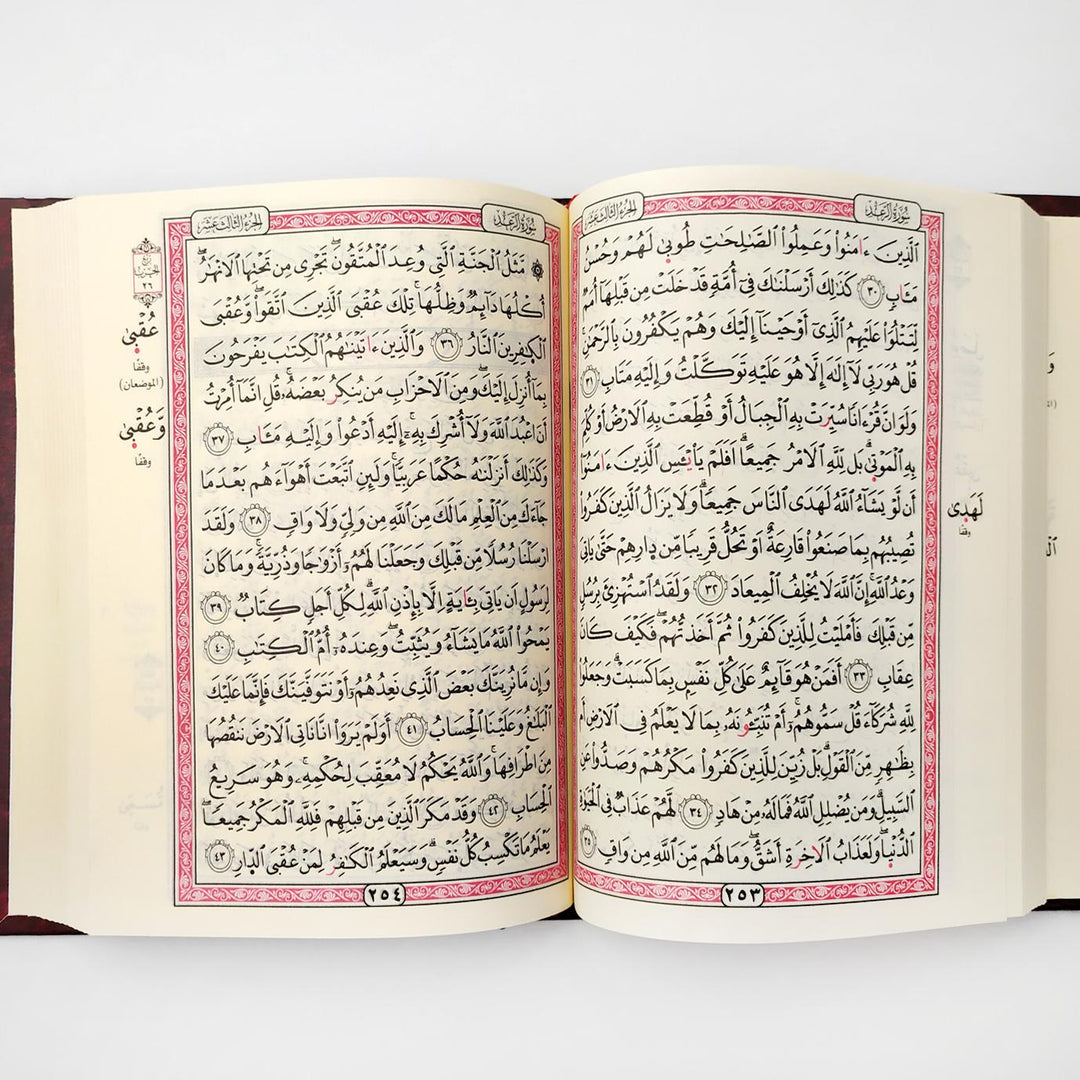 سُورَةُ الرَّعْدِ
الجزء الثالث عشر
الَّذِينَ ءَامَنُواْ وَعَمِلُواْ الصَّٰلِحَٰتِ طُوبىٰ لَهُمْ وَحُسْنُ
مَـَٔابٖ ٣٠ كَذَٰلِكَ أَرْسَلْنَٰكَ فِىٓ أُمَّةٖ قَدْ خَلَتْ مِن قَبْلِهَا أُمَمٞ
لِّتَتْلُوَاْ عَلَيْهِمُ الَّذِىٓ أَوْحَيْنَآ إِلَيْكَ وَهُمْ يَكْفُرُونَ بِالرَّحْمَٰنِ
قُلْ هُوَ رَبِّى لَآ إِلَٰهَ إِلَّا هُوَ عَلَيْهِ تَوَكَّلْتُ وَإِلَيْهِ مَتَابِ ٣١
وَلَوَ اَنَّ قُرْءَاناٗ سُيِّرَتْ بِهِ الْجِبَالُ أَوْ قُطِّعَتْ بِهِ الَارْضُ أَوْ كُلِّمَ
بِهِ الْمَوْتىٰ بَل لِّلهِ الَامْرُ جَمِيعاًۖ اَفَلَمْ يَاْيْـَٔسِ الَّذِينَ ءَامَنُوٓاْ
أَن لَّوْ يَشَآءُ اللَّهُ لَهَدَى النَّاسَ جَمِيعاٗۖ وَلَا يَزَالُ الَّذِينَ كَفَرُواْ
تُصِيبُهُم بِمَا صَنَعُواْ قَارِعَةٌ أَوْ تَحُلُّ قَرِيباٗ مِّن دِارِهِمْ حَتَّىٰ يَاتِىَ
وَعْدُ اللَّهِۚ إِنَّ اللَّهَ لَا يُخْلِفُ الْمِيعَادَ ٣٢ وَلَقَدُ اُسْتُهْزِئَ بِرُسُلٖ
مِّن قَبْلِكَ فَأَمْلَيْتُ لِلَّذِينَ كَفَرُواْ ثُمَّ أَخَذتُّهُمْۖ فَكَيْفَ كَانَ
عِقَابِ ٣٣ أَفَمَنْ هُوَ قَآئِمٌ عَلَىٰ كُلِّ نَفْسِۭ بِمَا كَسَبَتْۖ وَجَعَلُواْ
لِلهِ شُرَكَآءَ قُلْ سَمُّوهُمُۥٓۚ أَمْ تُنَبِّـُٔونَهُۥ بِمَا لَا يَعْلَمُ فِى الَارْضِ أَم
بِظَٰهِرٖ مِّنَ الْقَوْلِۖ بَلْ زُيِّنَ لِلَّذِينَ كَفَرُواْ مَكْرُهُمْ وَصَدُّواْ عَنِ
السَّبِيلِۖ وَمَنْ يُّضْلِلِ اللَّهُ فَمَا لَهُۥ مِنْ هَادٖ ٣٤ لَّهُمْ عَذَابٌ فِى الْحَيَوٰةِ
الدُّنْيٰاۖ وَلَعَذَابُ الَاخِرَةِ أَشَقُّۖ وَمَا لَهُم مِّنَ اللَّهِ مِن وَاقٖ ٣٥
٢٥٣
لَهَدىٰ
وقفًا
سُورَةُ الرَّعْدِ
الجزء الثالث عشر
۞ مَّثَلُ الْجَنَّةِ الَّتِى وُعِدَ الْمُتَّقُونَۖ تَجْرِى مِن تَحْتِهَا الَانْهَٰرُۖ
أُكْلُهَا دَآئِمٞ وَظِلُّهَاۚ تِلْكَ عُقْبَى الَّذِينَ اَتَّقَواْۖ وَّعُقْبَى
الْكٰفِرِينَ النَّارُۖ ٣٦ وَالَّذِينَ ءَاتَيْنَٰهُمُ الْكِتَٰبَ يَفْرَحُونَ
بِمَآ أُنزِلَ إِلَيْكَۖ وَمِنَ الَاحْزَابِ مَنْ يُّنكِرُ بَعْضَهُۥۚ قُلِ اِنَّمَآ أُمِرْتُ
أَنَ اَعْبُدَ اللَّهَ وَلَآ أُشْرِكَ بِهِۦٓۚ إِلَيْهِ أَدْعُواْ وَإِلَيْهِ مَـَٔابِ ٣٧
وَكَذَٰلِكَ أَنزَلْنَٰهُ حُكْماً عَرَبِيّاٗۖ وَلَئِنِ اِتَّبَعْتَ أَهْوَآءَهُم بَعْدَ مَا
جَآءَكَ مِنَ الْعِلْمِ مَا لَكَ مِنَ اللَّهِ مِنْ وَّلِىّٖ وَلَا وَاقٖ ٣٨ وَلَقَدَ
اَرْسَلْنَا رُسُلاٗ مِّن قَبْلِكَ وَجَعَلْنَا لَهُمُۥٓ أَزْوَٰجاٗ وَذُرِّيَّةٗۚ وَمَا كَانَ
لِرَسُولٍ أَنْ يَّاتِىَ بِـَٔايَةٍ اِلَّا بِإِذْنِ اللَّهِۖ لِكُلِّ أَجَلٖ كِتَابٞۖ ٣٩
يَمْحُواْ اللَّهُ مَا يَشَآءُ وَيُثَبِّتُۖ وَعِندَهُۥٓ أُمُّ الْكِتَٰبِ ٤٠
وَإِن مَّا نُرِيَنَّكَ بَعْضَ الَّذِى نَعِدُهُمُۥٓ أَوْ نَتَوَفَّيَنَّكَ فَإِنَّمَا عَلَيْكَ
الْبَلَٰغُ وَعَلَيْنَا الْحِسَابُۖ ٤١ أَوَلَمْ يَرَوَاْ اَنَّا نَاتِى الَارْضَ نَنقُصُهَا
مِنَ اَطْرَافِهَاۚ وَاللَّهُ يَحْكُمُ لَا مُعَقِّبَ لِحُكْمِهِۦۚ وَهُوَ سَرِيعُ
الْحِسَابِۖ ٤٢ وَقَدْ مَكَرَ الَّذِينَ مِن قَبْلِهِمْ فَلِلهِ الْمَكْرُ جَمِيعاٗۖ
يَعْلَمُ مَا تَكْسِبُ كُلُّ نَفْسٖۖ وَسَيَعْلَمُ الْكَٰفِرُ لِمَنْ عُقْبَى الدِّارِۖ ٤٣
٢٥٤
ربع
الحزب
٢٦
عُقْبىٰ
وقفًا
(الموضعان)
وَّعُقْبىٰ
وقفًا